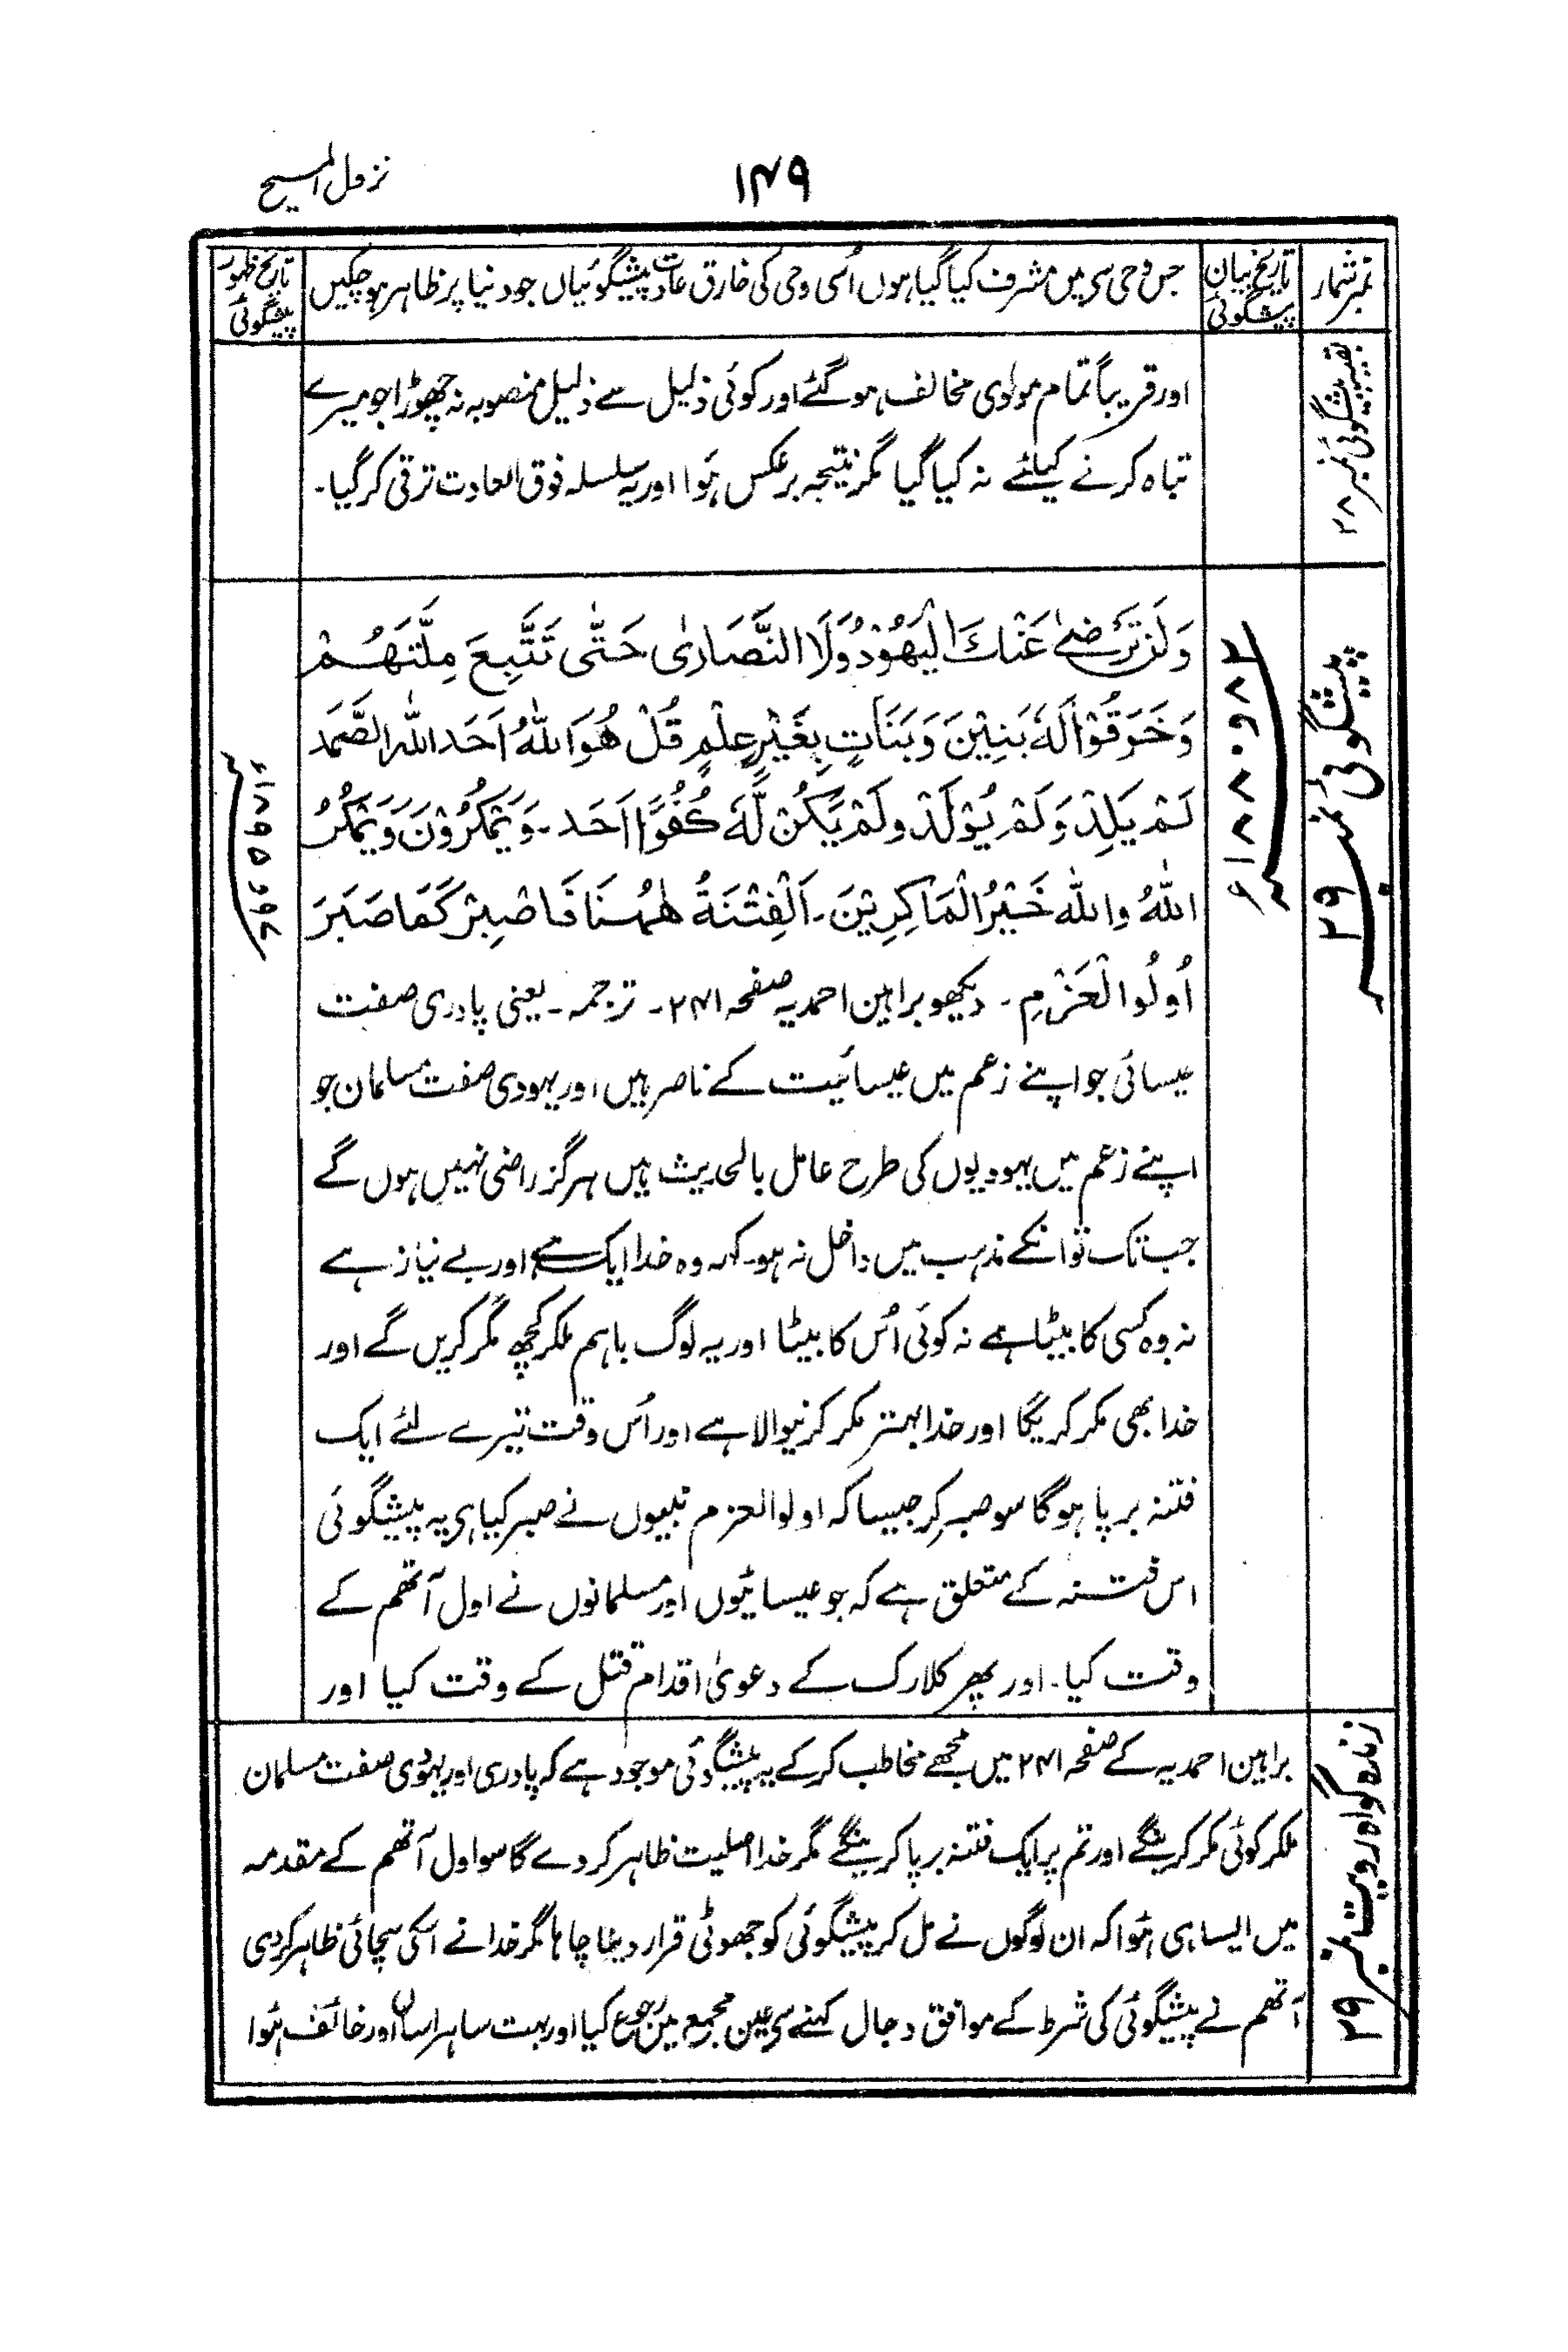 ۱۴۹
نزول المسیح
نمبر شمار
تاریخ بیان پیشگوئی
جس وحی سے میں مشرف کیا گیا ہوں اُسی وحی کی خارق عادت پیشگوئیاں جو دنیا پر ظاہر ہو چکیں
تاریخ ظہور پیشگوئی
بقیہ پیشگوئی نمبر ۲۸
اور قریباً تمام مولوی مخالف ہو گئے اور کوئی ذلیل سے ذلیل منصوبہ نہ چھوڑا جو میرے
تباہ کرنے کیلئے نہ کیا گیا مگر نتیجہ برعکس ہُوا اور یہ سلسلہ فوق العادت ترقی کر گیا۔
پیشگوئی نمبر ۲۹
۱۸۸۰ء و ۸۲
وَلَنْ تَرْضٰی عَنْكَ الْيَهُوْدُ وَلَا النَّصَارٰى حَتّٰى تَتَّبِعَ مِلَّتَهُمْ
وَخَرَقُوْا لَهٗ بَنِيْنَ وَبَنَاتٍ بِغَيْرِ عِلْمٍ قُلْ هُوَ اللّٰهُ اَحَد اللّٰه الصَّمَد
لَمْ يَلِدْ وَلَمْ يُوْلَدْ وَلَمْ يَكُنْ لَّهٗ كُفُوًا اَحَد۔ وَيَمْكُرُوْنَ وَيَمْكُرُ
اللّٰهُ وَاللّٰه خَيْرُ الْمَاكِرِيْنَ۔ اَلْفِتْنَةُ هٰهُنَا فَاصْبِرْ كَمَا صَبَرَ
اُولُوا الْعَزْمِ۔ دیکھو براہین احمدیہ صفحہ ۲۴۱۔ ترجمہ۔ یعنی پادری صفت
عیسائی جو اپنے زعم میں عیسائیت کے ناصر ہیں اور یہودی صفت مسلمان جو
اپنے زعم میں یہودیوں کی طرح عامل بالحدیث ہیں ہرگز راضی نہیں ہوں گے
جب تک تو انکے مذہب میں داخل نہ ہو۔ کہہ وہ خدا ایک ہے اور بے نیاز ہے
نہ وہ کسی کا بیٹا ہے نہ کوئی اُس کا بیٹا اور یہ لوگ باہم ملکر کچھ مکر کریں گے اور
خدا بھی مکر کریگا اور خدا بہتر مکر کرنیوالا ہے اور اُس وقت تیرے لئے ایک
فتنہ برپا ہوگا سو صبر کر جیسا کہ اولوالعزم نبیوں نے صبر کیا ہے یہ پیشگوئی
اس فتنہ کے متعلق ہے کہ جو عیسائیوں اور مسلمانوں نے اول آتھم کے
وقت کیا۔ اور پھر کلارک کے دعویٰ اقدام قتل کے وقت کیا اور
۱۸۹۵ء و ۹۶
زندہ گواہ رویت نمبر ۲۹
براہین احمدیہ کے صفحہ ۲۴۱ میں مجھے مخاطب کرکے یہ پیشگوئی موجود ہے کہ پادری اور یہودی صفت مسلمان
ملکر کوئی مکر کرینگے اور تم پر ایک فتنہ برپا کرینگے مگر خدا اصلیت ظاہر کر دے گا سو اول آتھم کے مقدمہ
میں ایسا ہی ہُوا کہ ان لوگوں نے مل کر پیشگوئی کو جھوٹی قرار دینا چاہا مگر خدا نے اسکی سچائی ظاہر کردی
آتھم نے پیشگوئی کی شرط کے موافق دجال کہنے سے عین مجمع میں رجوع کیا اور بہت سا ہراساں اور خائف ہُوا